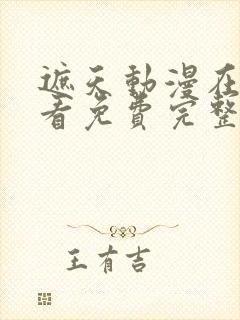 遮天動漫在
看免費完整
王有吉